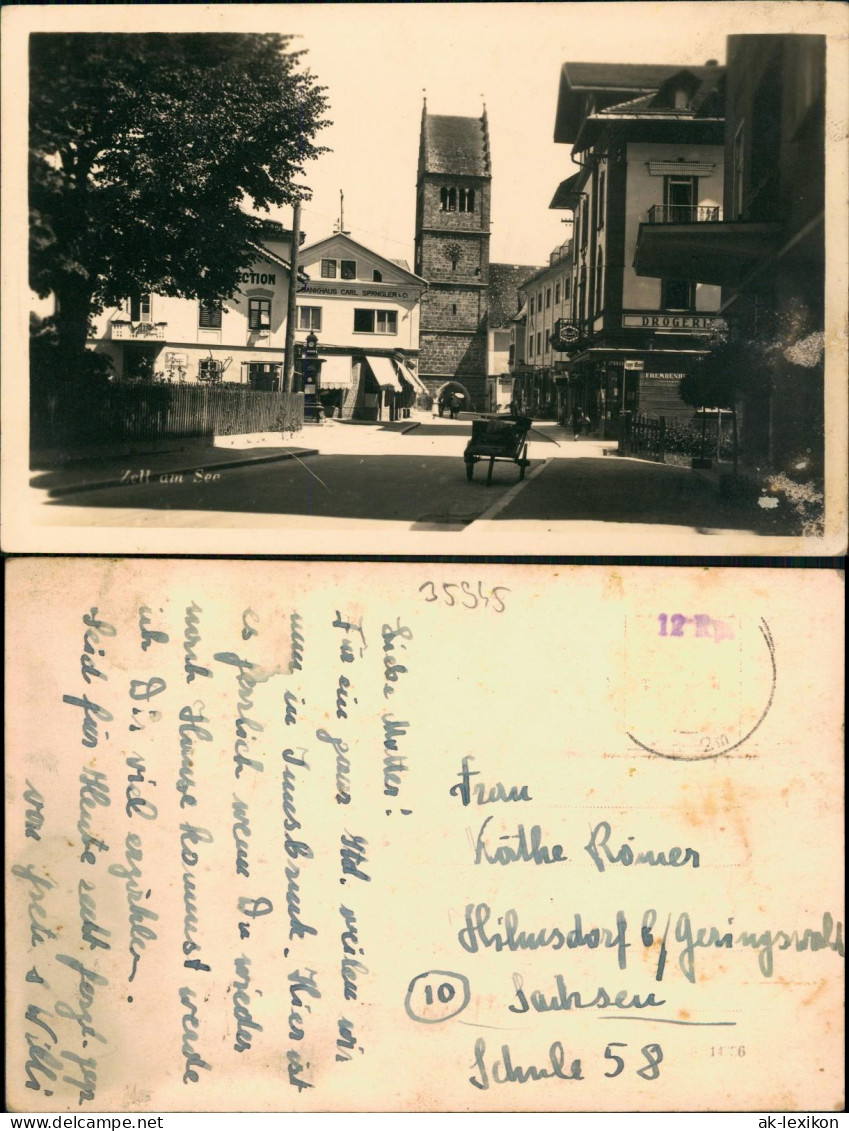 ECTION
BANKHAUS CARL SPÄNGLER & CO.
DROGERI
FREMDENH
Zell am See
35945
12 Rp.
Liebe Mutter!
Für ein paar Std. weilen wir
nun in Innsbruck. Hier ist
es herrlich wenn Du wieder
nach Hause kommst werde
ich Dir viel erzählen.
Seid für Heute recht herzl. geg.
von Grete & Willi
Frau
Käthe Römer
Hilmsdorf b/Geringswald
10
Sachsen
Schule 58
ak-lexikon